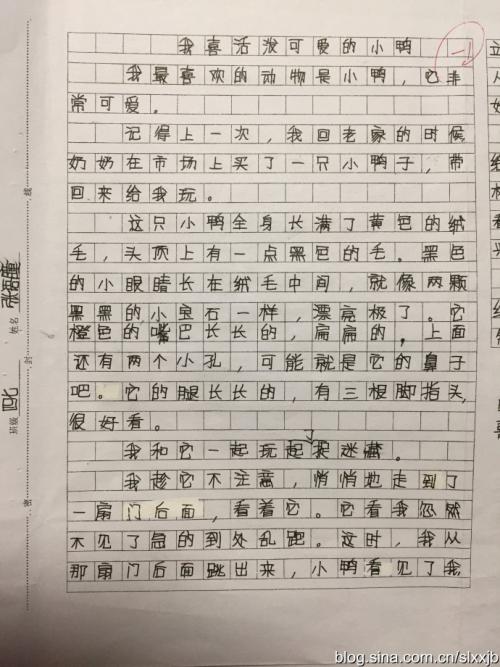 我喜活泼可爱的小鸭
我最喜欢的动物是小鸭，它非
常可爱。
记得上一次，我回老家的时候
奶奶在市场上买了一只小鸭子，带
回来给我玩。
这只小鸭全身长满了黄色的绒
毛，头顶上有一点黑色的毛。黑色
的小眼睛长在绒毛中间，就像两颗
黑黑的小宝石一样，漂亮极了。它
橙色的嘴巴长长的，扁扁的，上面
还有两个小孔，可能就是它的鼻子
吧。它的腿长长的，有三根脚指头，
很好看。
我和它一起玩起捉迷藏。
我趁它不注意，悄悄地走到了
一扇门后面，看着它。它看我忽然
不见了急的到处乱跑。这时，我从
那扇门后面跳出来，小鸭看见了我
姓名
班级
密
封
线
blog.sina.com.cn/slxxjb